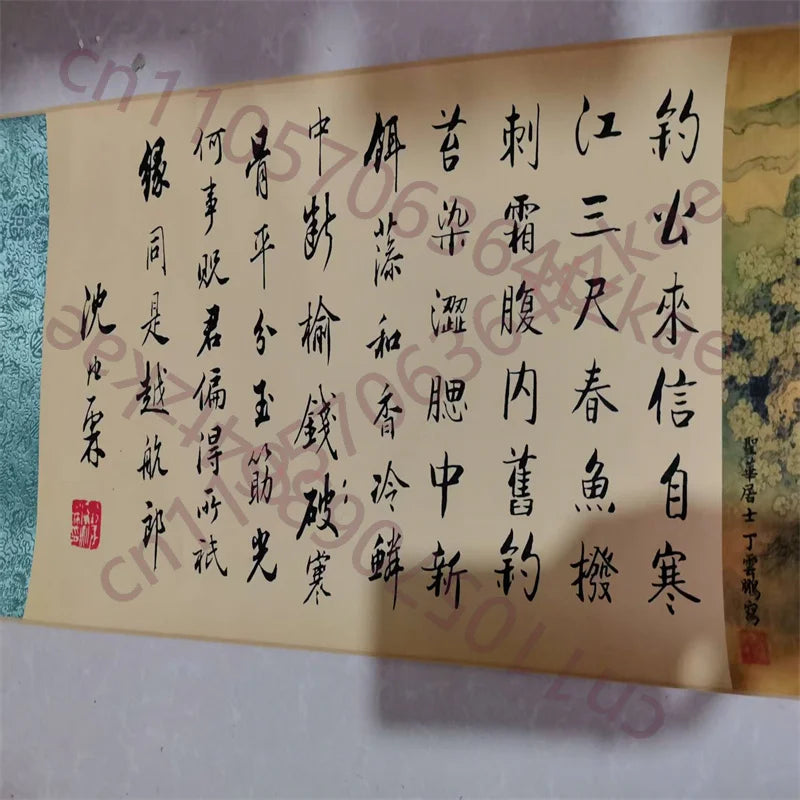 聖華居士丁雲鵬寫
釣公來信自寒
江三尺春魚撥
刺霜腹内舊鈎
苔染澀腮中新
餌藻和香冷鱗
中斷榆錢破寒
骨平分玉筯光
何事貺君偏得所祇
緣同是越航郎
沈霖